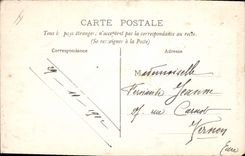 CARTE POSTALE
Tous les pays étrangers n'acceptent pas la correspondance au recto.
(Se renseigner à la Poste)
Correspondance
Adresse
29 11 1912
Mademoiselle
Fernande Jeanne
rue Carnot
Vernon
Eure